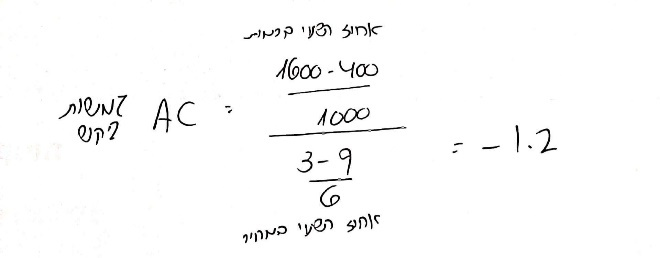 אחוז השינוי בכמות
גמישות ביקוש AC = ((1600-400)/1000) / ((3-9)/6) = -1.2
אחוז השינוי במחיר